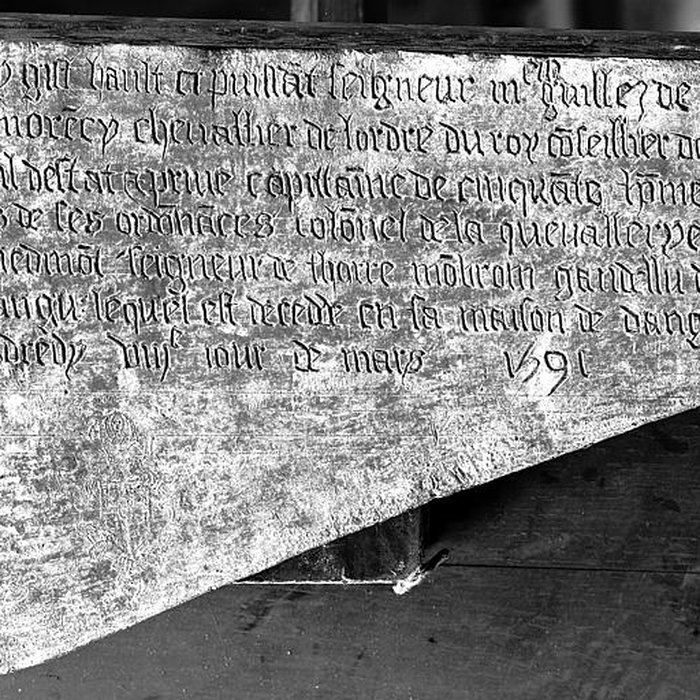 gist hault et puissāt seigneur mre guillez de
morēcy chevallier de lordre du roy cōseillier de
destat et prive cappitaine de cinquāte hōm
de ses ordōnāces colōnel de la quevallerye
iedmōt seigneur de thorre mōbroin gandellu
lequel est decede en sa maison de dang
dredy iour de mars 1591